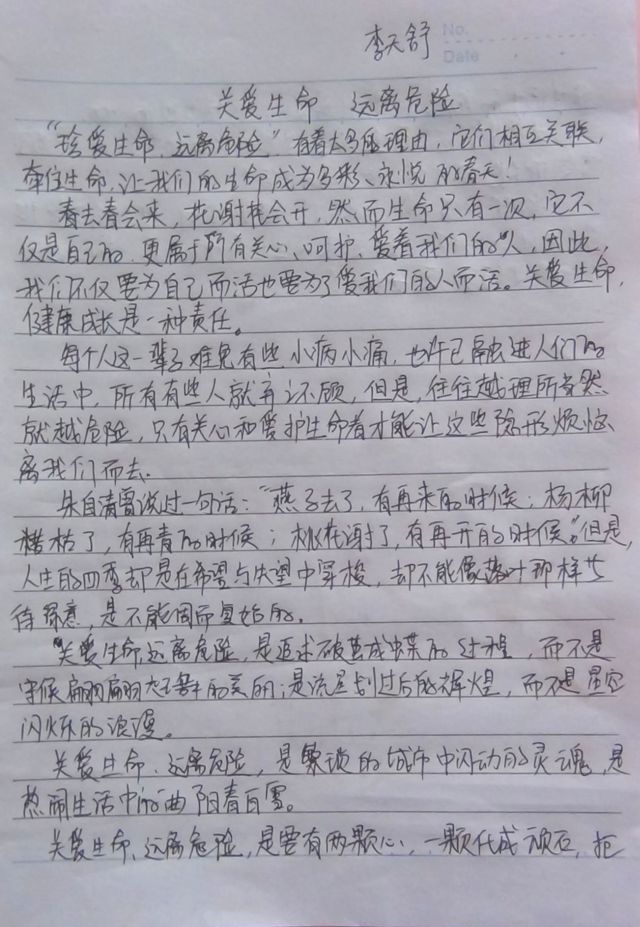 No.
李天舒
Date
关爱生命 远离危险
"珍爱生命,远离危险"有着太多的理由,它们相互关联,
牵住生命,让我们的生命成为多彩、永悦的春天!
春去春会来,花谢花会开,然而生命只有一次,它不
仅是自己的,更属于所有关心、呵护、爱着我们的人,因此,
我们不仅要为自己而活也要为了爱我们的人而活。关爱生命,
健康成长是一种责任。
每个人这一辈子难免有些小病小痛,也许已融进人们的
生活中,所有有些人就弃之不顾,但是,往往越理所当然
就越危险,只有关心和爱护生命着才能让这些隐形烦恼
离我们而去.
朱自清曾说过一句话:"燕子去了,有再来的时候;杨柳
枯了,有再青的时候;桃花谢了,有再开的时候。"但是,
人生的四季却是在希望与失望中穿梭,却不能像落叶那样
待绿意,是不能周而复始的。
"关爱生命,远离危险,是追求破茧成蝶的过程,而不是
守候翩翩起舞的美丽;是流星划过后的辉煌,而不是星空
闪烁的浪漫。
关爱生命、远离危险,是繁琐的城市中闪动的灵魂,是
热闹生活中的曲阳春白雪。
关爱生命、远离危险,是要有两颗心,一颗化成顽石,拒